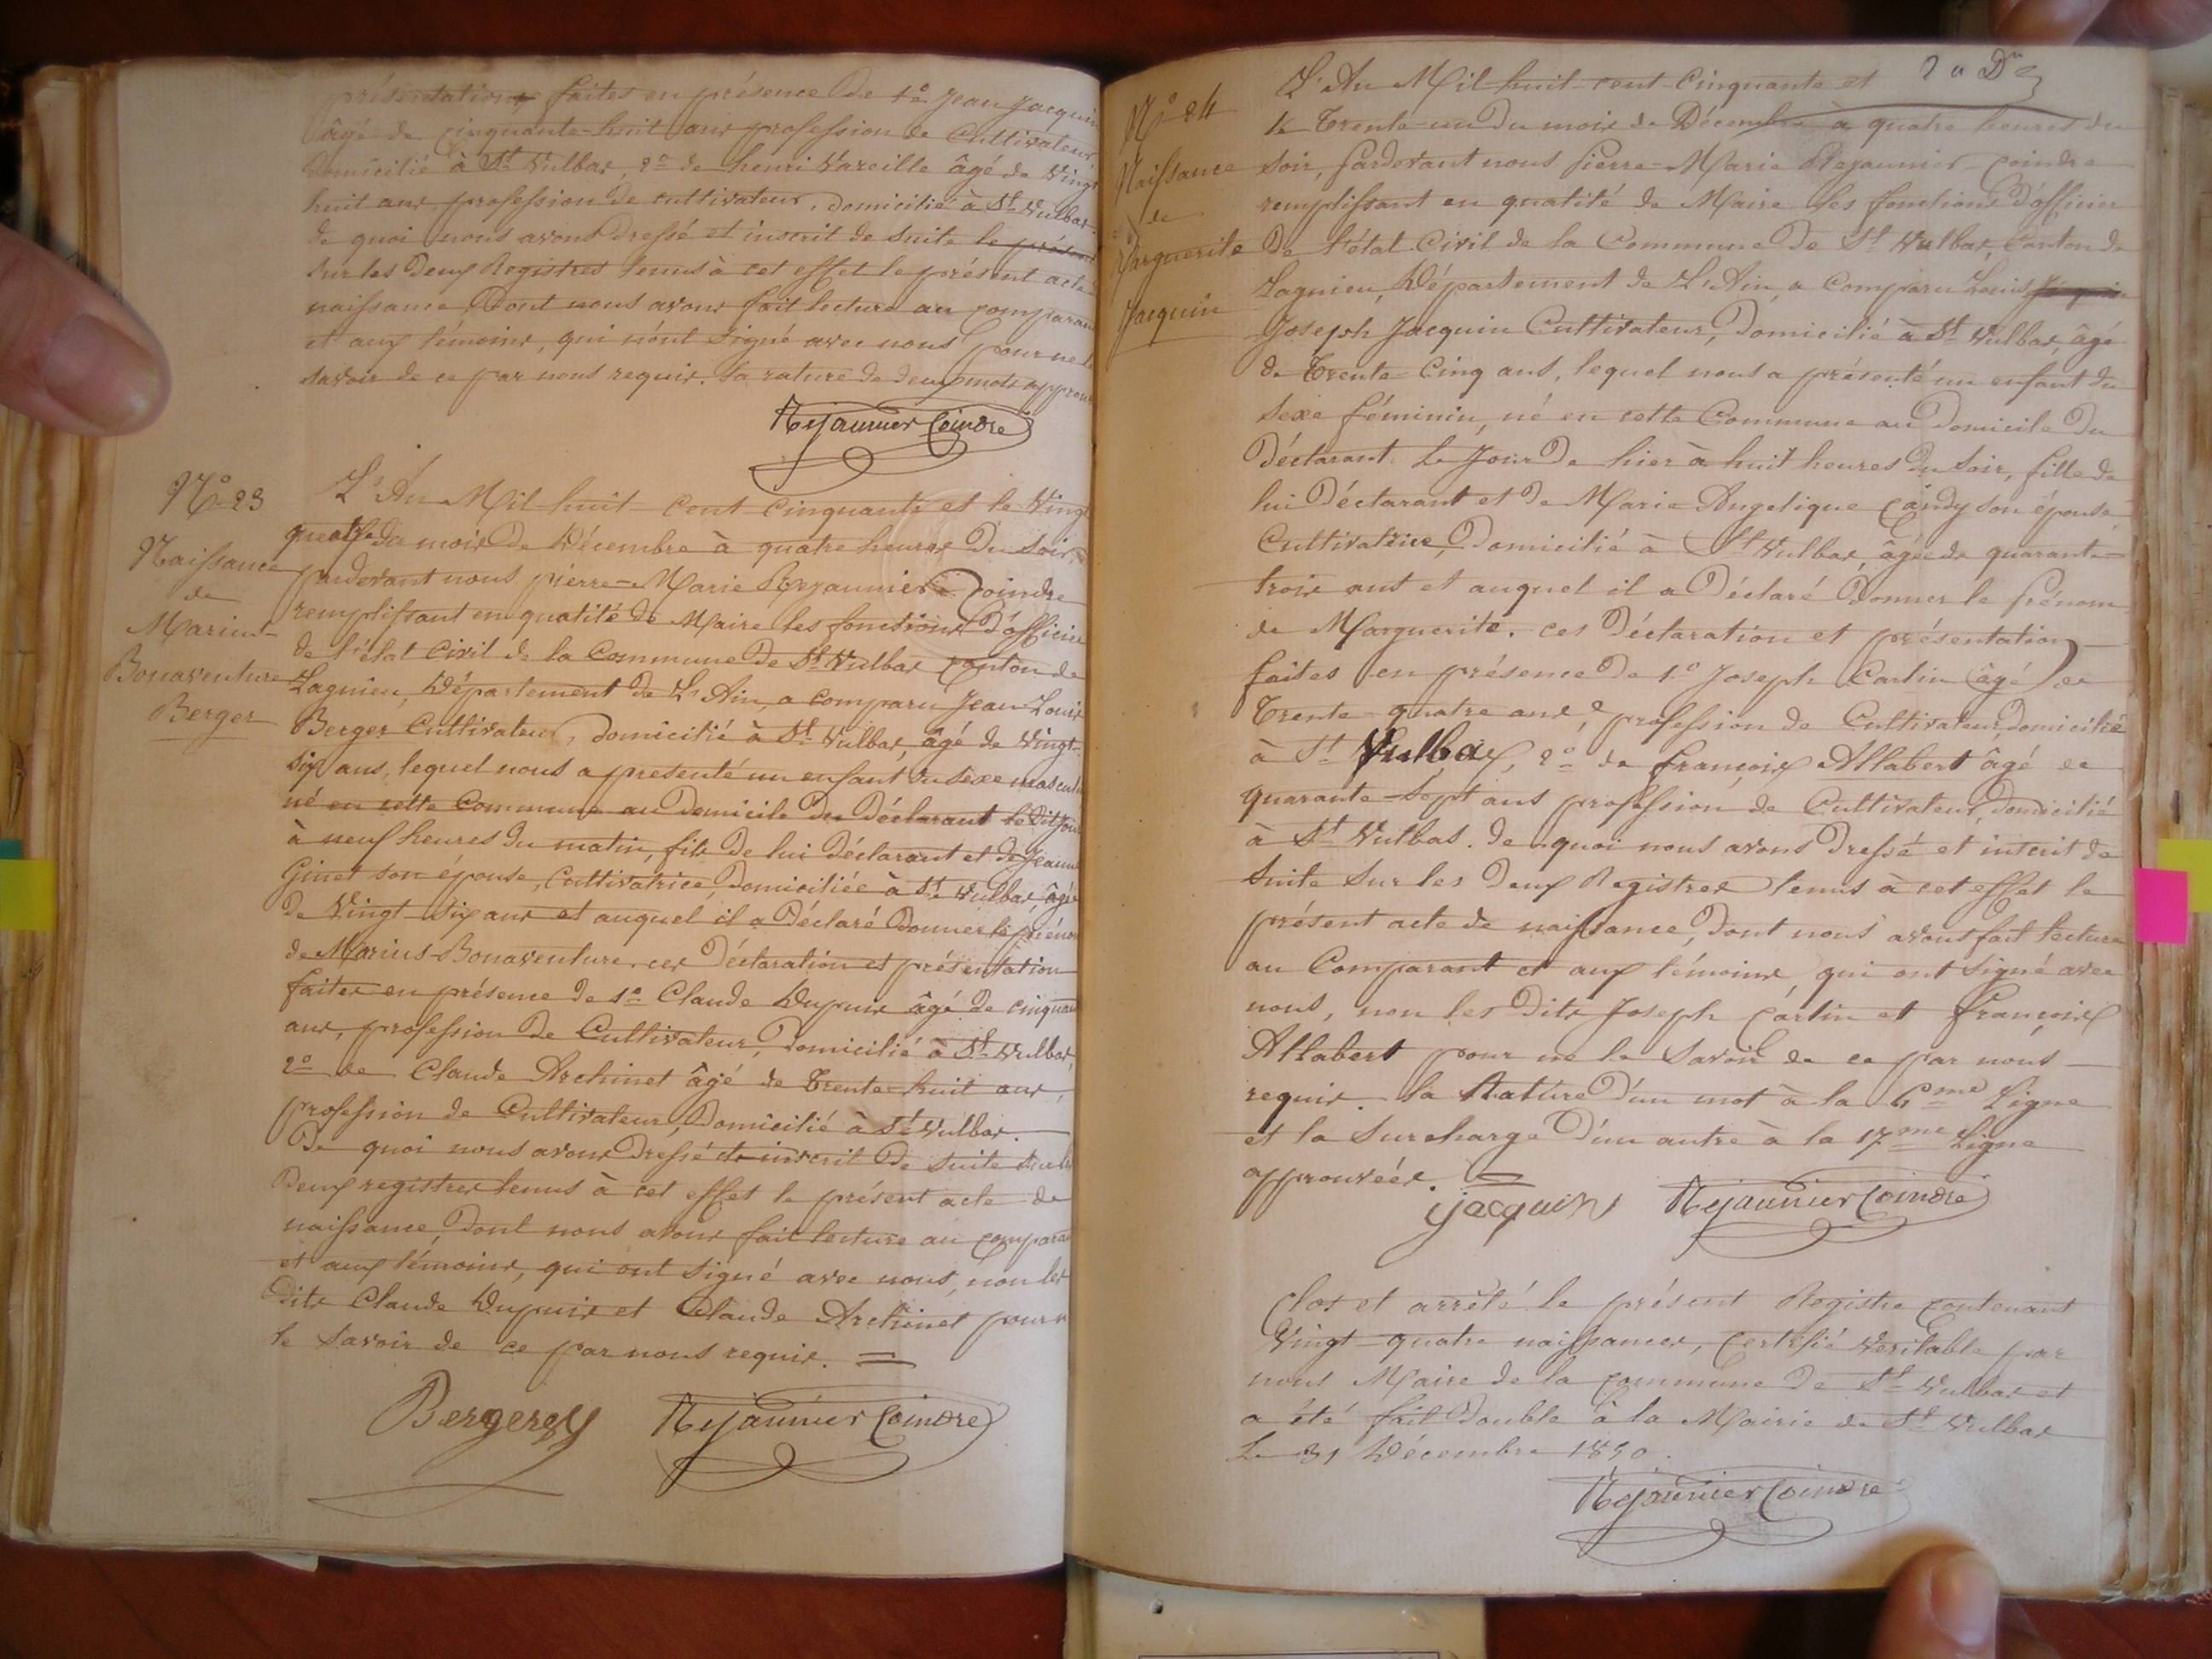 présentations faites en présence de 1° Jean Jacquin
âgé de cinquante-huit ans profession de Cultivateur,
domicilié à St Vulbas, 2° de henri Vareille âgé de Vingt
huit ans profession de cultivateur, domicilié à St Vulbas.
de quoi nous avons dressé et inscrit de suite le présent
sur les deux Registres tenus à cet effet le présent acte
naissance, dont nous avons fait lecture au comparant
et aux témoins, qui n'ont signé avec nous pour ne le
savoir de ce par nous requis. la rature de deux mots approu
Rejaunier Coindre
N° 23
Naissance
de
Marius-
Bonaventure
Berger
L'An Mil-huit-cent-cinquante et le Vingt
quatre du mois de Décembre à quatre heures du soir,
pardevant nous pierre-Marie Rejaunier Coindre
remplissant en qualité de Maire les fonctions d'officier
de l'état Civil de la Commune de St Vulbas canton de
Lagnieu, Département de L'Ain, a comparu Jean-Louis
Berger Cultivateur, domicilié à St Vulbas, âgé de Vingt-
six ans, lequel nous a presenté un enfant du sexe masculin
né en cette Commune au Domicile du Déclarant ledit jour
à neuf heures du matin, fils de lui Déclarant et de Jeanne
Ginet son épouse, Cultivatrice, domiciliée à St Vulbas, âgée
de Vingt-six ans et auquel il a Déclaré Donner le prénom
de Marius-Bonaventure. ces Déclaration et présentation
faites en présence de 1° Claude Dupuis âgé de cinquante
ans, profession de Cultivateur, Domicilié à St Vulbas,
2° de Claude Archinet âgé de Trente-huit ans,
profession de Cultivateur, Domicilié à St Vulbas.
De quoi nous avons Dressé et inscrit de suite sur les
Deux registres tenus à cet effet le présent acte de
naissance, Dont nous avons fait lecture au comparant
et aux témoins, qui ont signé avec nous, non les
Dits Claude Dupuis et Claude Archinet pour ne
le savoir de ce par nous requis.
Berger
Rejaunier Coindre
N° 24
Naissance
de
Marguerite
Jacquin
L'An Mil-huit-cent-Cinquante et
le Trente-un du mois de Décembre à quatre heures du
soir, pardevant nous pierre-Marie Rejaunier-Coindre
remplissant en qualité de Maire les fonctions d'officier
de l'état Civil de la Commune de St Vulbas, Canton de
Lagnieu, Département de L'Ain, a comparu Louis
Joseph Jacquin Cultivateur, Domicilié à St Vulbas, âgé
de Trente-Cinq ans, lequel nous a présenté un enfant du
sexe féminin, né en cette Commune au Domicile du
Déclarant. le Jour De hier à huit heures du Soir, fille de
lui Déclarant et de Marie Angelique Candy son épouse,
Cultivatrice, Domicilié à St Vulbas, âgée de quarante-
trois ans et auquel il a Déclaré Donner le prénom
de Marguerite. ces Déclaration et présentation
faites en présence de 1° Joseph Carlin âgé de
Trente-quatre ans, profession de Cultivateur, domicilié
à St Vulbas, 2° de françois Allabert âgé de
quarante-sept ans profession de Cultivateur, domicilié
à St Vulbas. de quoi nous avons Dressé et inscrit de
suite sur les Deux Registres tenus à cet effet le
présent acte de naissance, Dont nous avons fait lecture
au Comparant et aux témoins, qui ont signé avec
nous, non les Dits Joseph Carlin et françois
Allabert pour ne le Savoir de ce par nous
requis. la Rature D'un mot à la 6me Ligne
et la Surcharge D'un autre à la 17me Ligne
approuvées.
jacquin
Rejaunier Coindre
Clos et arrêté le présent Registre contenant
Vingt-quatre naissances, Certifié Veritable par
nous Maire de la commune de St Vulbas et
a été fait Double à la Mairie de St Vulbas
Le 31 Décembre 1850.
Rejaunier Coindre